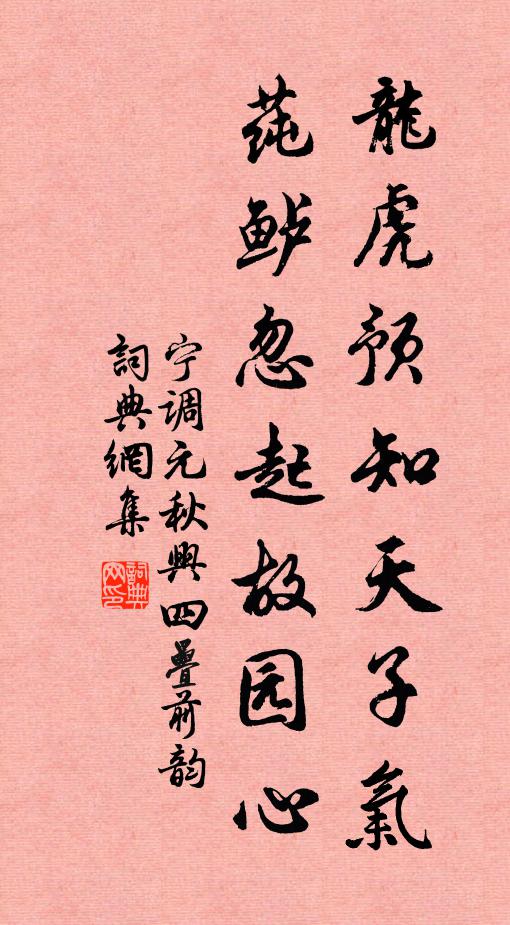 龍虎预知天子氣
莼鲈忽起故园心
宁调元秋興四疊前韵
詞典網集
詞典网印